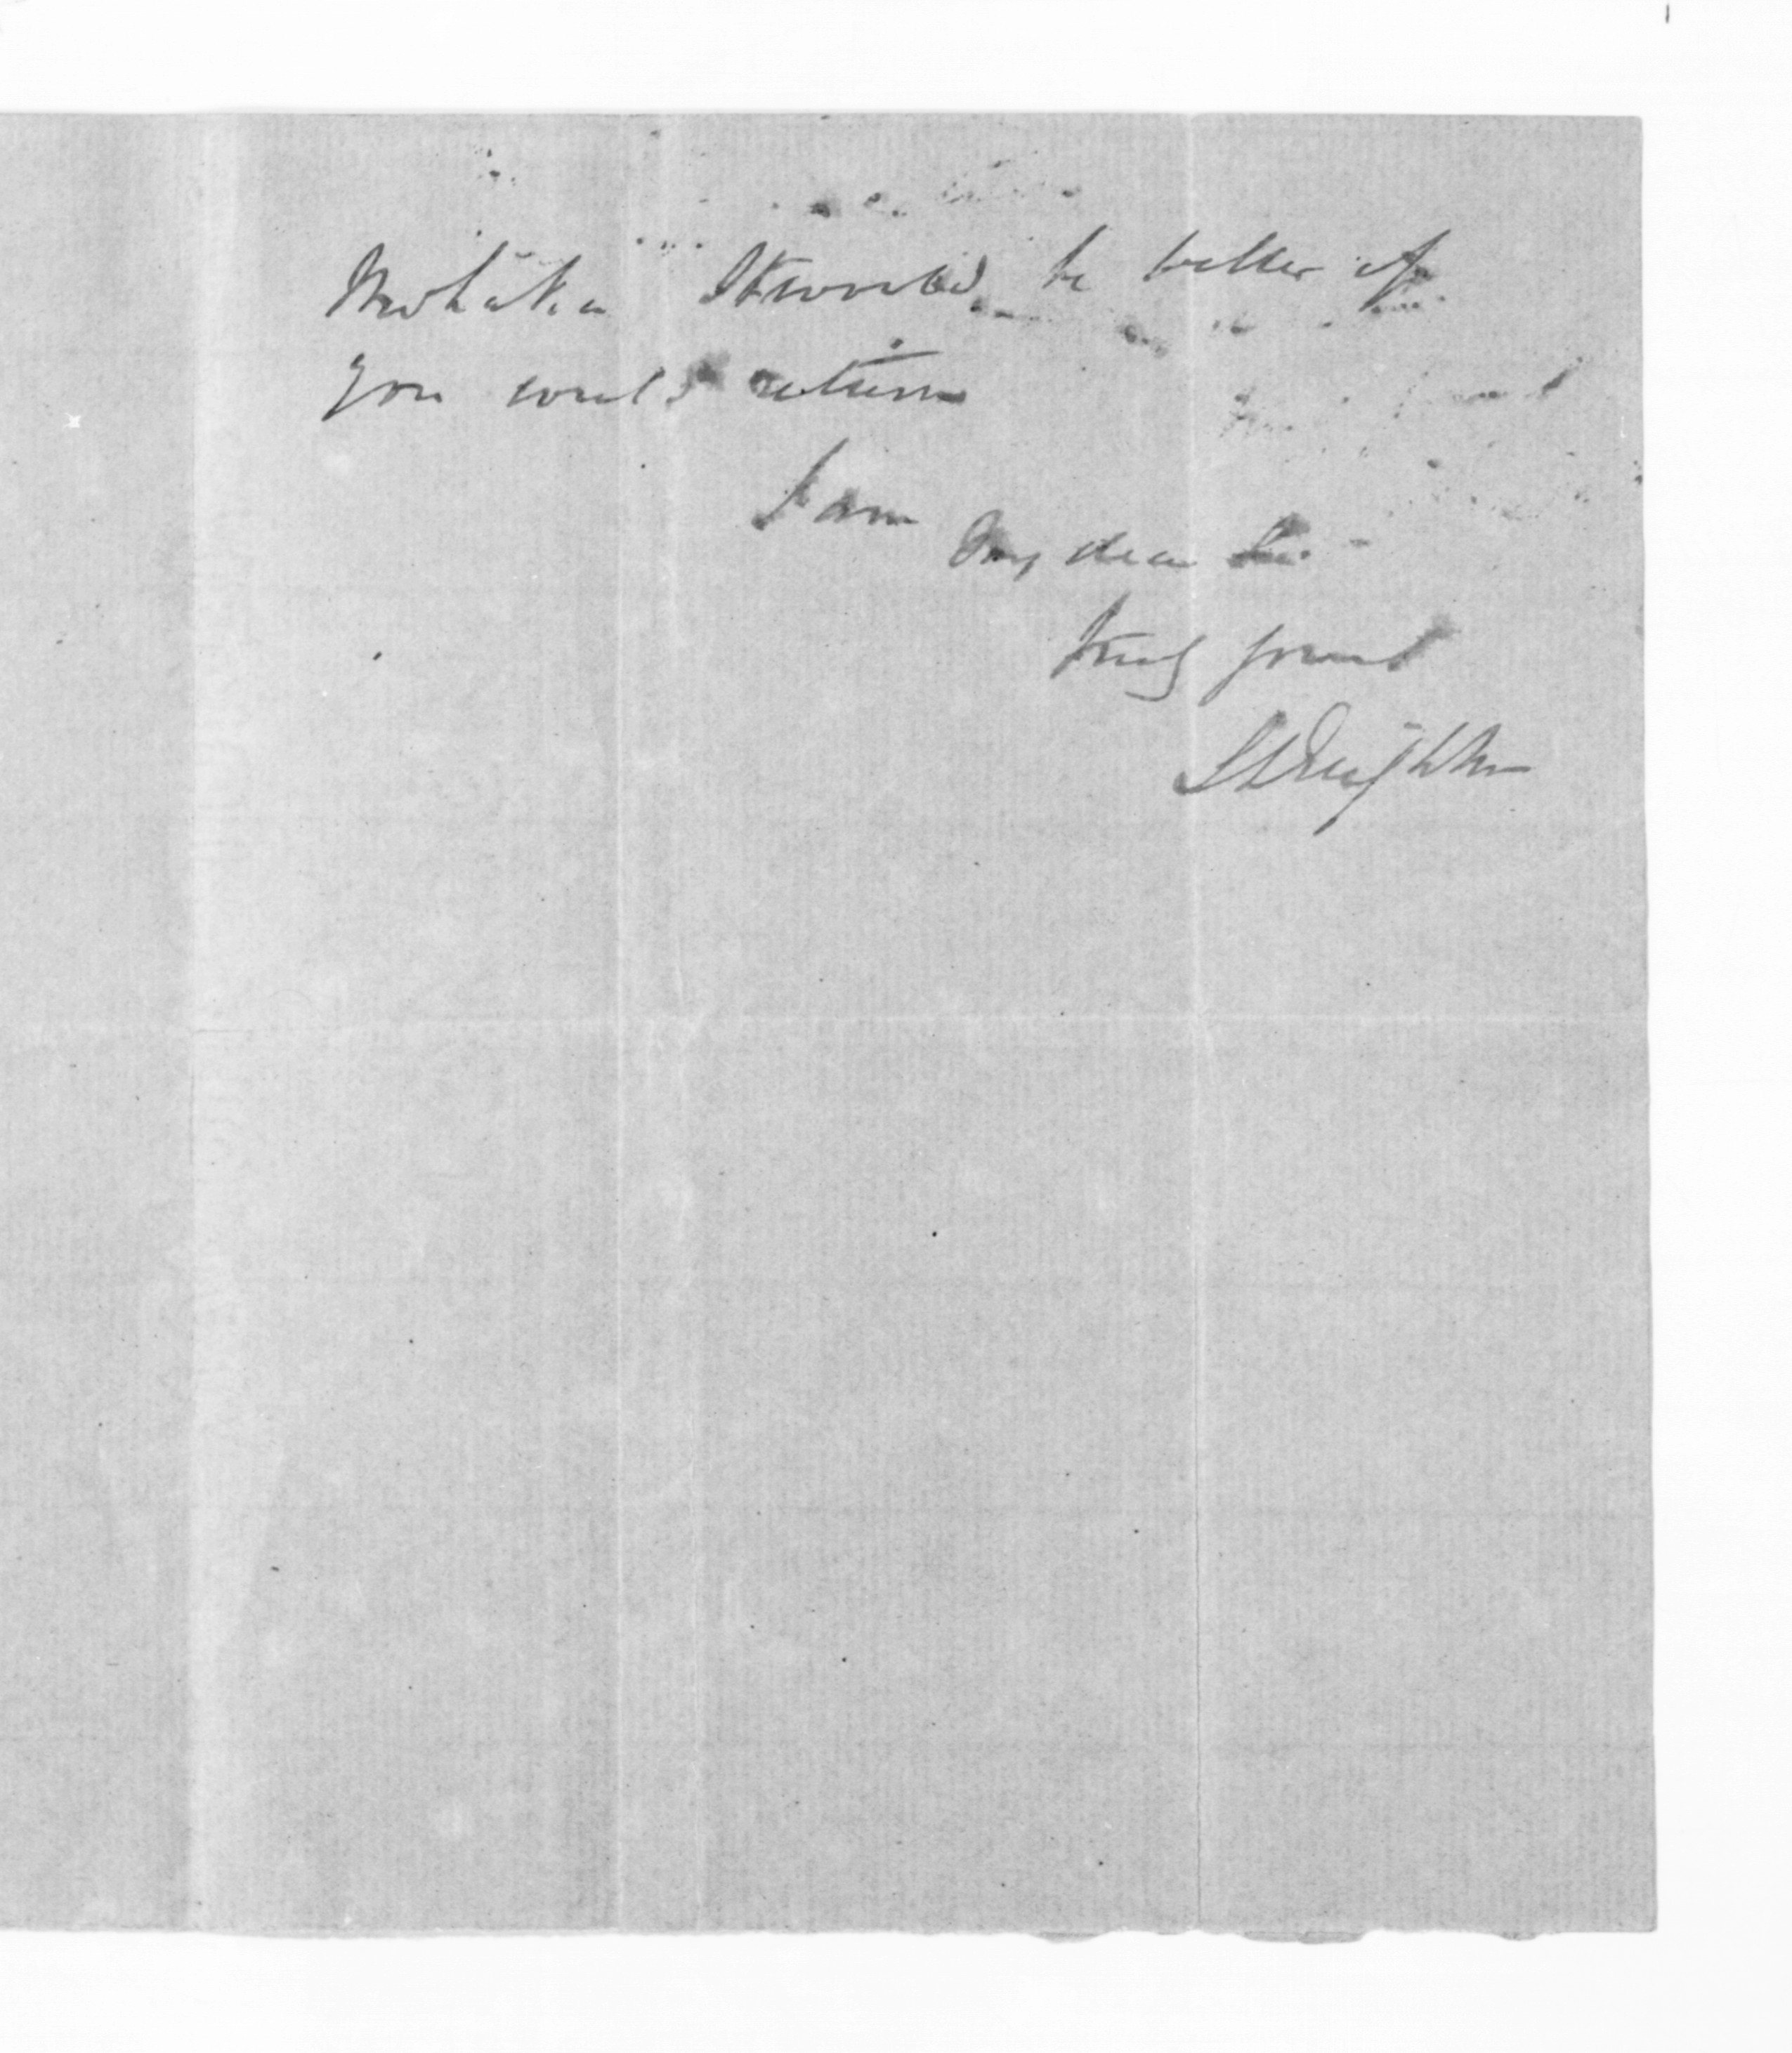 Mohaka It would be better if
you could return
I am
My dear Sir
Truly yours
S Deighton